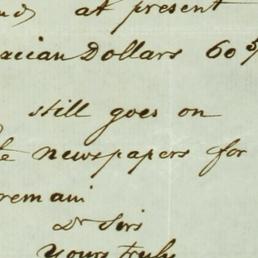 at present
Dollars 60
still goes on
newspapers for
remain
Dr Sirs
Yours truly